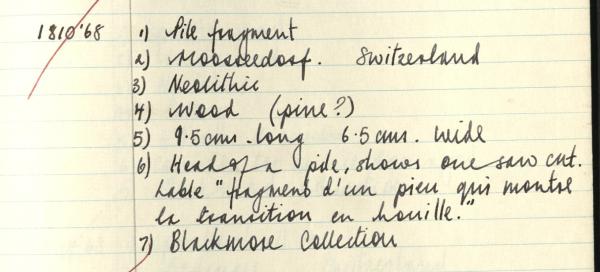 1810'68 1) Pile fragment
2) Moosseedorf. Switzerland
3) Neolithic
4) Wood (pine?)
5) 9.5cms. long 6.5cms. wide
6) Head of a pile, shows one saw cut.
Lable "fragment d'un pieu qui montre
la transition en houille."
7) Blackmore Collection